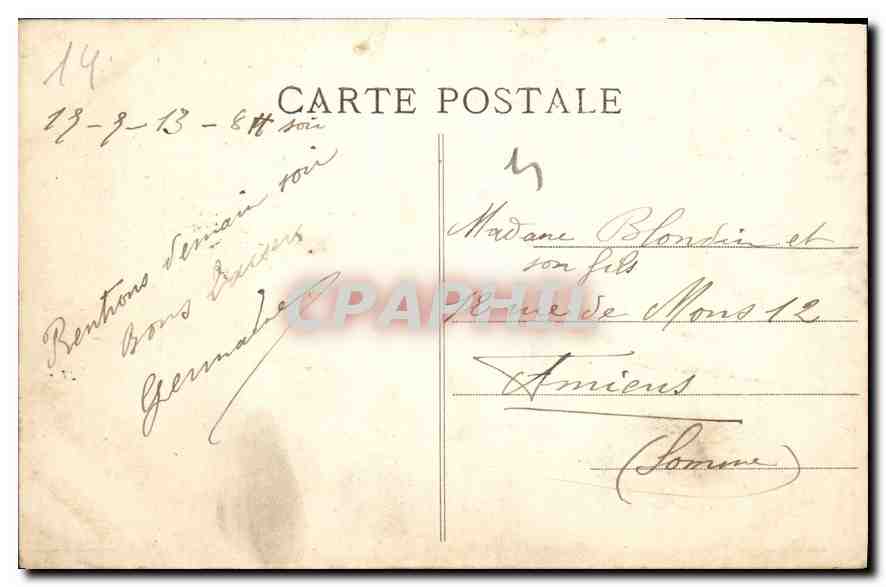 14
CARTE POSTALE
13-9-13 - 8H soir
Rentrons demain soir
Bons baisers
Germaine
5
Madame Blondin et
son fils
rue de Mons 12
Amiens
(Somme)
CPAPHIL